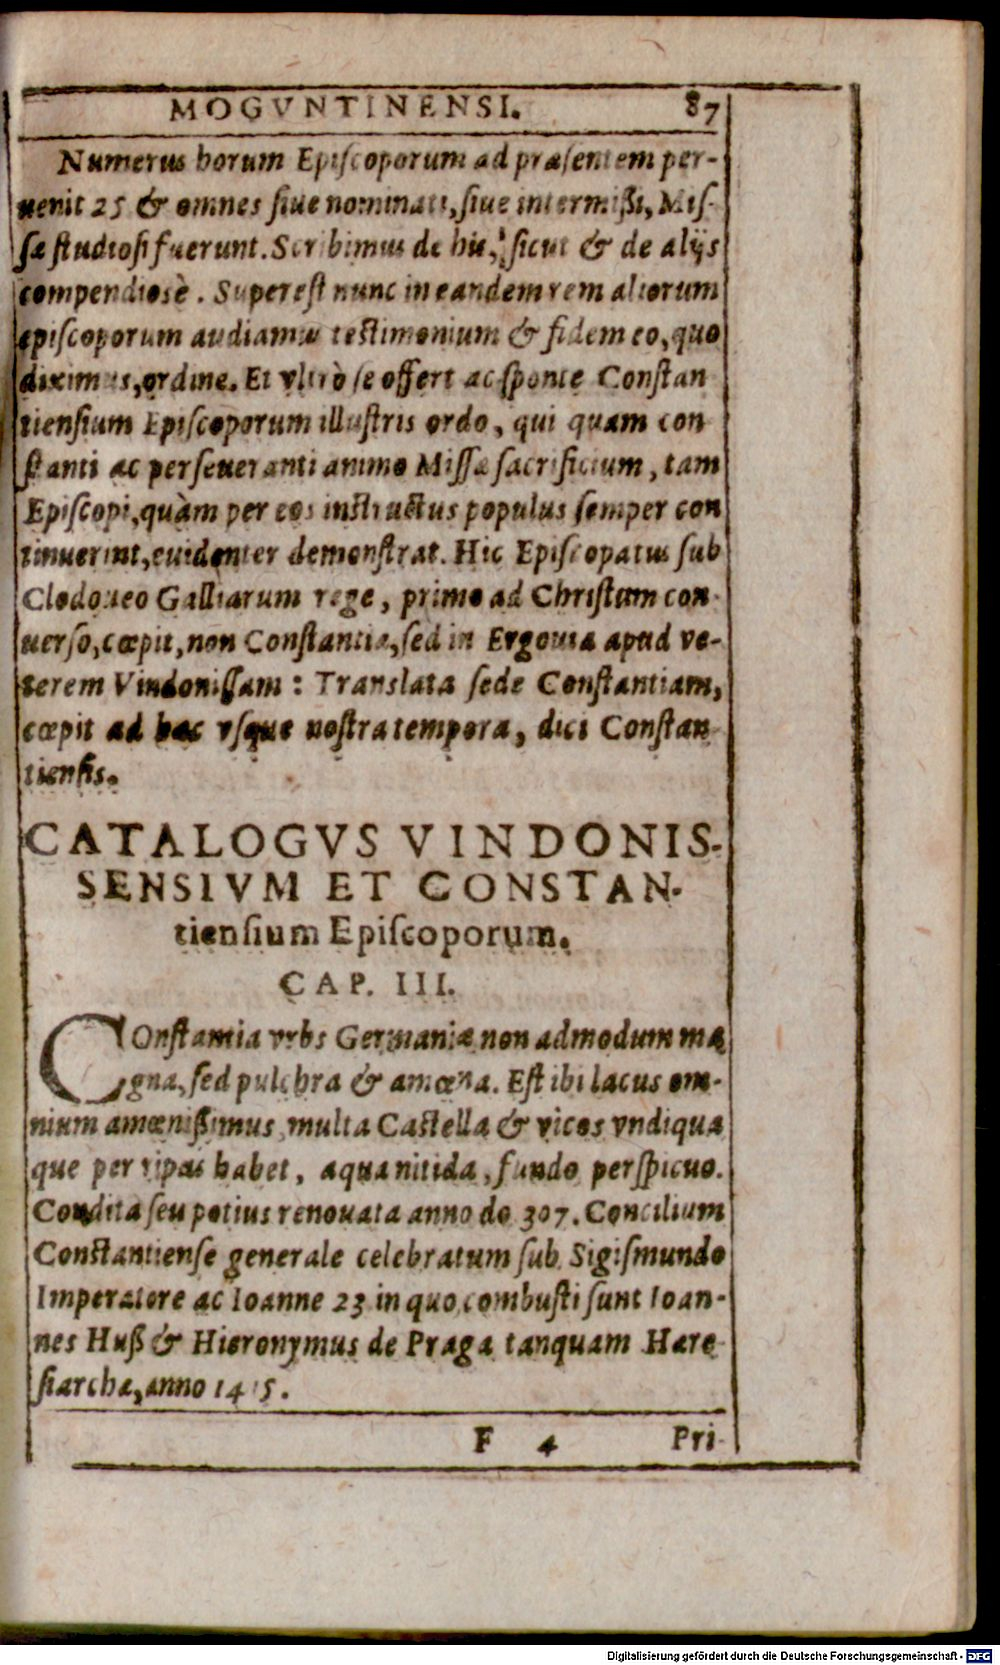 MOGVNTINENSI. 87
Numerus horum Episcoporum ad præsentem per-
uenit 25 & omnes siue nominati, siue intermißi, Mis-
sæ studiosi fuerunt. Scribimus de his, sicut & de alijs
compendiosè. Superest nunc in eandem rem aliorum
episcoporum audiamus testimonium & fidem eo, quo
diximus, ordine. Et vltrò se offert ac sponte Constan
tiensium Episcoporum illustris ordo, qui quam con
stanti ac perseueranti animo Missæ sacrificium, tam
Episcopi, quàm per eos instructus populus semper con
tinuerint, euidenter demonstrat. Hic Episcopatus sub
Clodoueo Galliarum rege, primo ad Christum con-
uerso, cœpit, non Constantia, sed in Ergouia apud ve-
terem Vindonissam: Translata sede Constantiam,
cœpit ad hæc vsque nostra tempora, dici Constan-
tiensis.
CATALOGVS VINDONIS-
SENSIVM ET CONSTAN-
tiensium Episcoporum.
CAP. III.
COnstantia vrbs Germaniæ non admodum ma
gna, sed pulchra & amœna. Est ibi lacus om-
nium amœnißimus multa Castella & vicos vndiqua
que per ripas habet, aqua nitida, fundo perspicuo.
Condita seu potius renouata anno do 307. Concilium
Constantiense generale celebratum sub Sigismundo
Imperatore ac Ioanne 23 in quo combusti sunt Ioan-
nes Huß & Hieronymus de Praga tanquam Hære
siarchæ, anno 1415.
F 4 Pri-
Digitalisierung gefördert durch die Deutsche Forschungsgemeinschaft - DFG